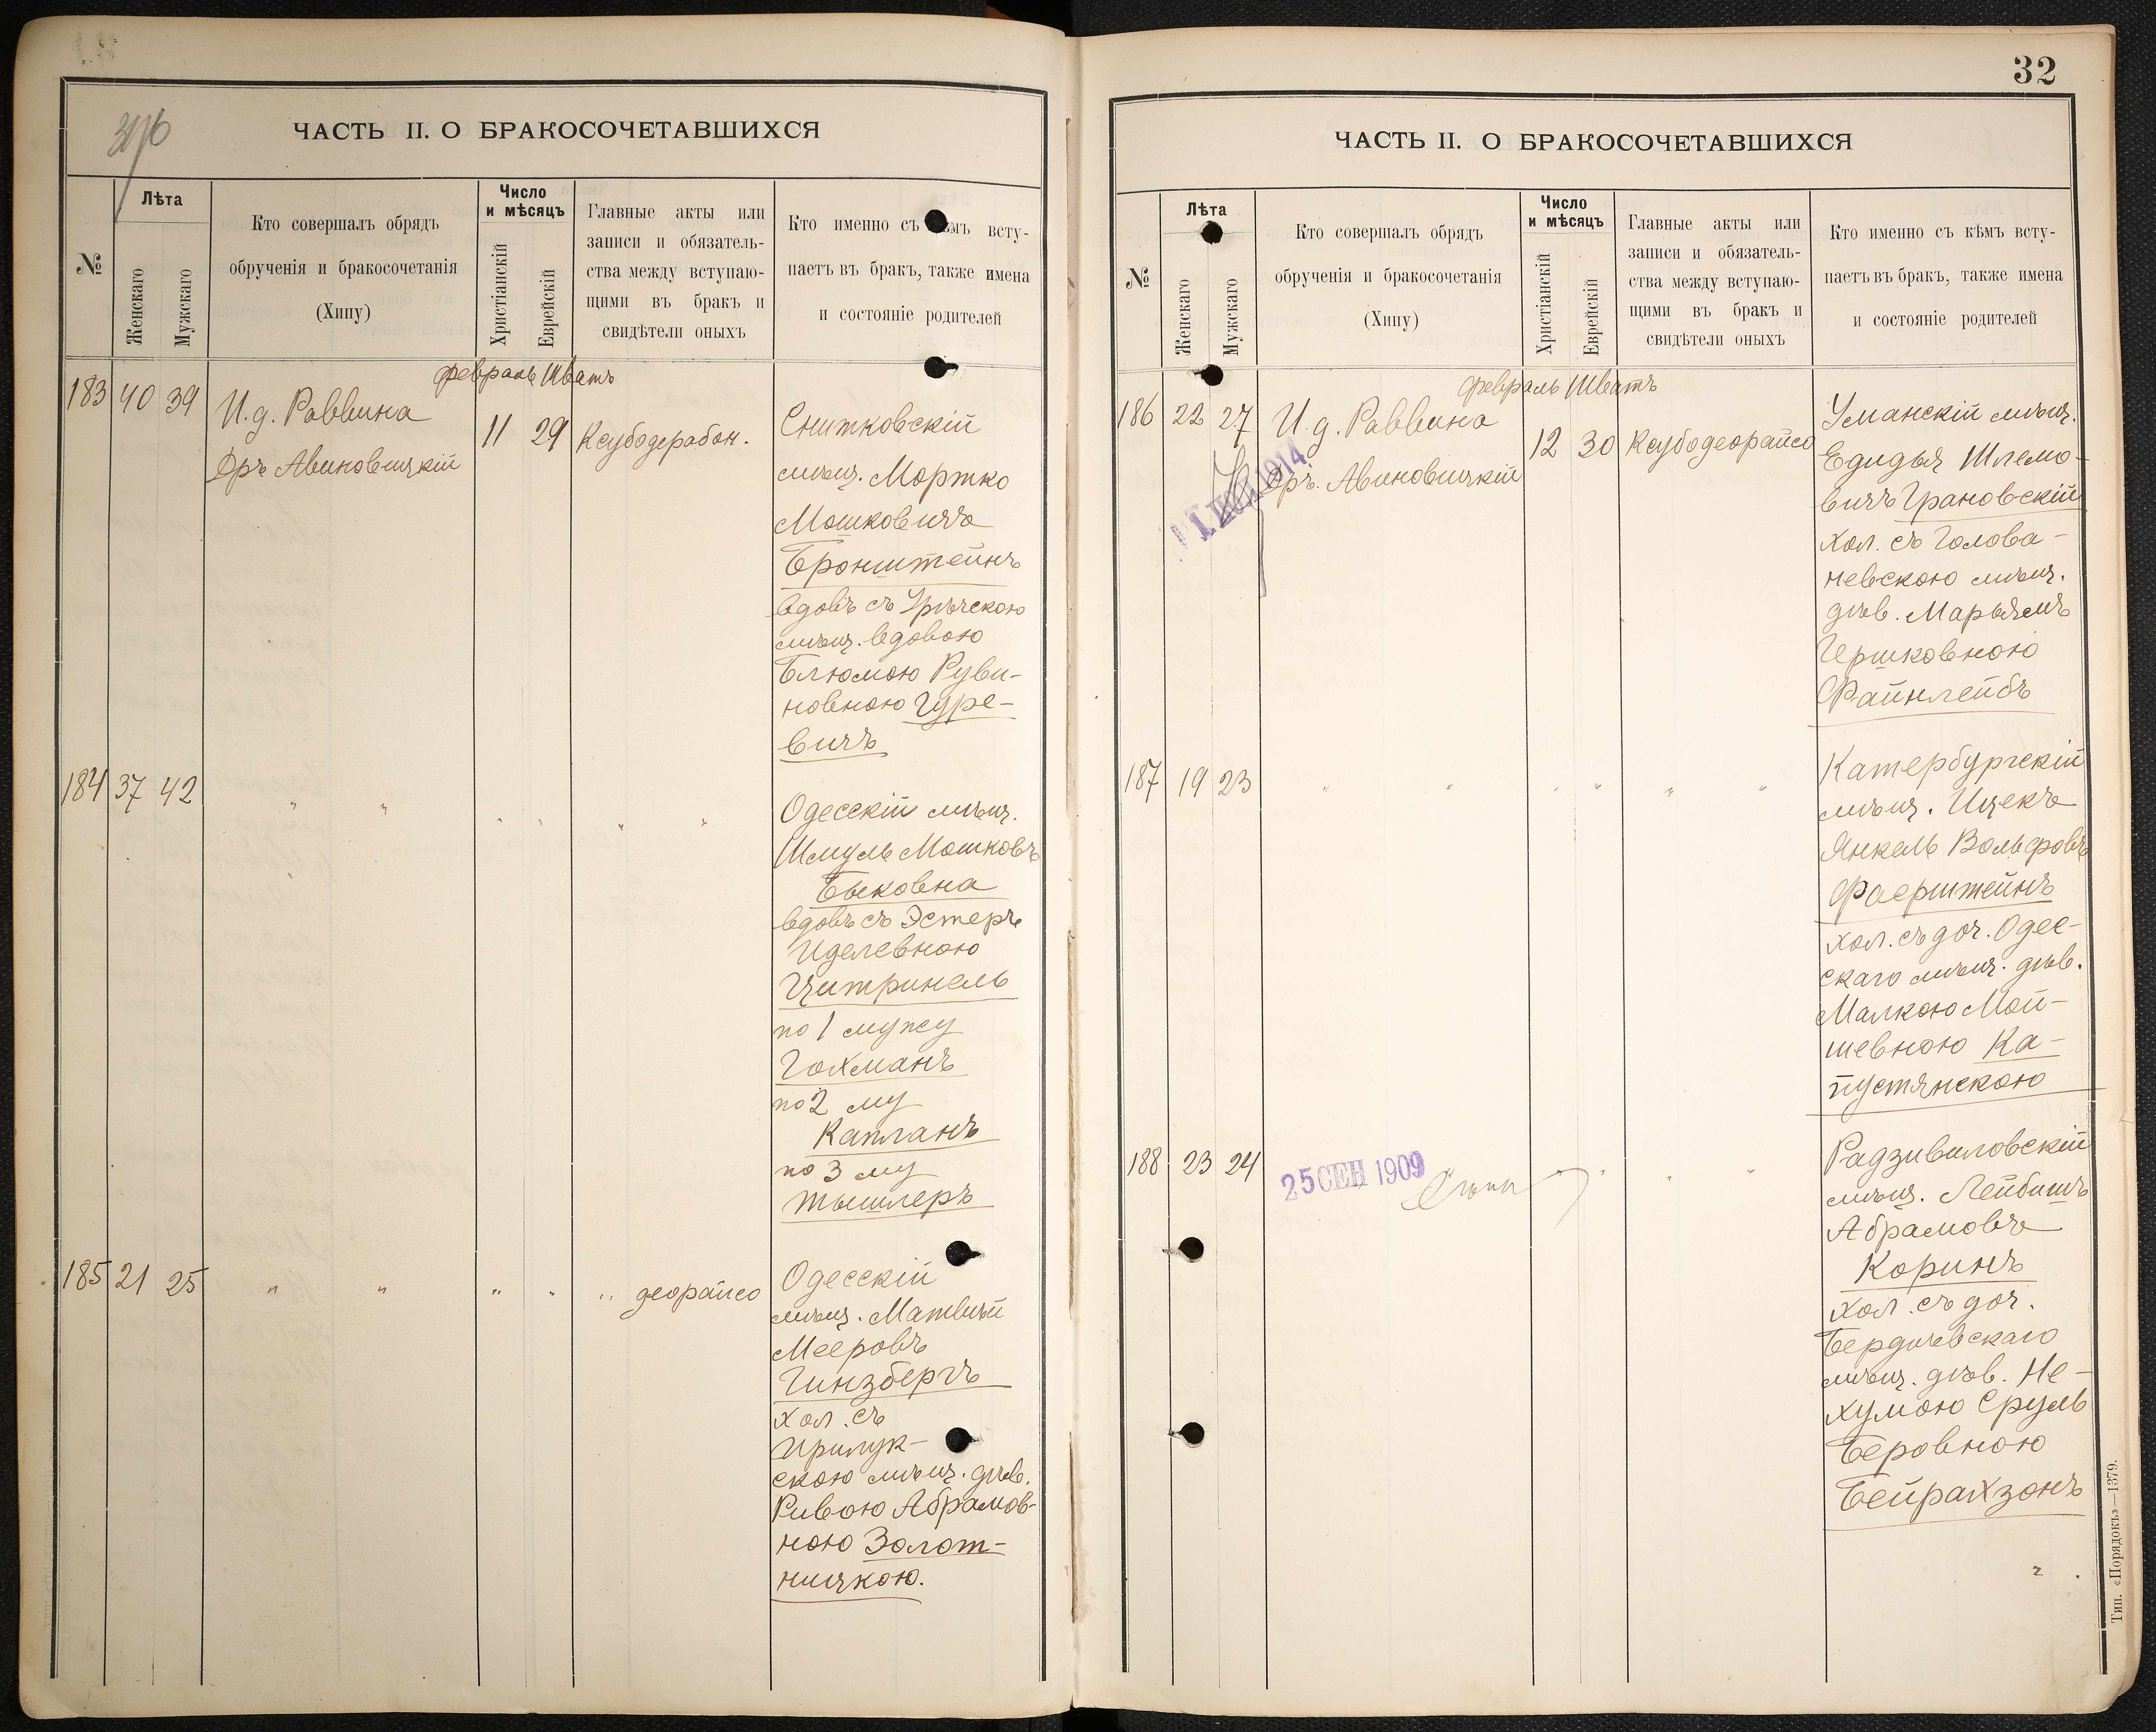 ЧАСТЬ II. О БРАКОСОЧЕТАВШИХСЯ
№
Лѣта
Женскаго
Мужскаго
Кто совершалъ обрядъ
обрученія и бракосочетанія
(Хипу)
Число
и мѣсяцъ
Христіанскій
Еврейскій
Главные акты или
записи и обязатель-
ства между вступаю-
щими въ бракъ и
свидѣтели оныхъ
Кто именно съ кѣмъ всту-
паетъ въ бракъ, также имена
и состояніе родителей
февраль Шватъ
183 40 39
И.д. Раввина
Дръ Авиновицкій
11 29
Ксубодерабон.
Снитковскій
мѣщ. Мортко
Мошковичъ
Бронштейнъ
вдовъ съ
мѣщ. вдовою
Блюмою Руви-
новною Гуре-
вичъ
184 37 42
" " " " " "
Одесскій мѣщ.
Шмуль Мошковъ
Быковна
вдовъ съ Эстеръ
Иделевною
Цитринель
по 1 мужу
Гохманъ
по 2 му
Капланъ
по 3 му
Тышлеръ
185 21 25
" " " " " деорайсо
Одесскій
мѣщ. Матвѣй
Мееровъ
Гинзбергъ
хол. съ
Прилук-
скою мѣщ. дѣв.
Ривою Абрамов-
ною Золот-
ницкою.
32
ЧАСТЬ II. О БРАКОСОЧЕТАВШИХСЯ
№
Лѣта
Женскаго
Мужскаго
Кто совершалъ обрядъ
обрученія и бракосочетанія
(Хипу)
Число
и мѣсяцъ
Христіанскій
Еврейскій
Главные акты или
записи и обязатель-
ства между вступаю-
щими въ бракъ и
свидѣтели оныхъ
Кто именно съ кѣмъ всту-
паетъ въ бракъ, также имена
и состояніе родителей
февраль Шватъ
186 22 27
И.д. Раввина
Дръ. Авиновицкій
1914
12 30
Ксубодеорайсо
Уманскій мѣщ.
Едидья Шлемо-
вичъ Грановскій
хол. съ Голова-
невскою мѣщ.
дѣв. Марьямъ
Гершковною
Файнлейбъ
187 19 23
" " " " " "
Катербургскій
мѣщ. Ицекъ
Янкель Вольфовъ
Фаерштейнъ
хол. съ доч. Одес-
скаго мѣщ. дѣв.
Малкою Мой-
шевною Ка-
пустянскою
188 23 24
25 СЕН 1909
Радзивиловскій
мѣщ. Лейбишъ
Абрамовъ
Коринъ
хол. съ доч.
Бердичевскаго
мѣщ. дѣв. Не-
хумою Сруль
Беровною
Бейрахзонъ
Тип. «Порядокъ»—1379.